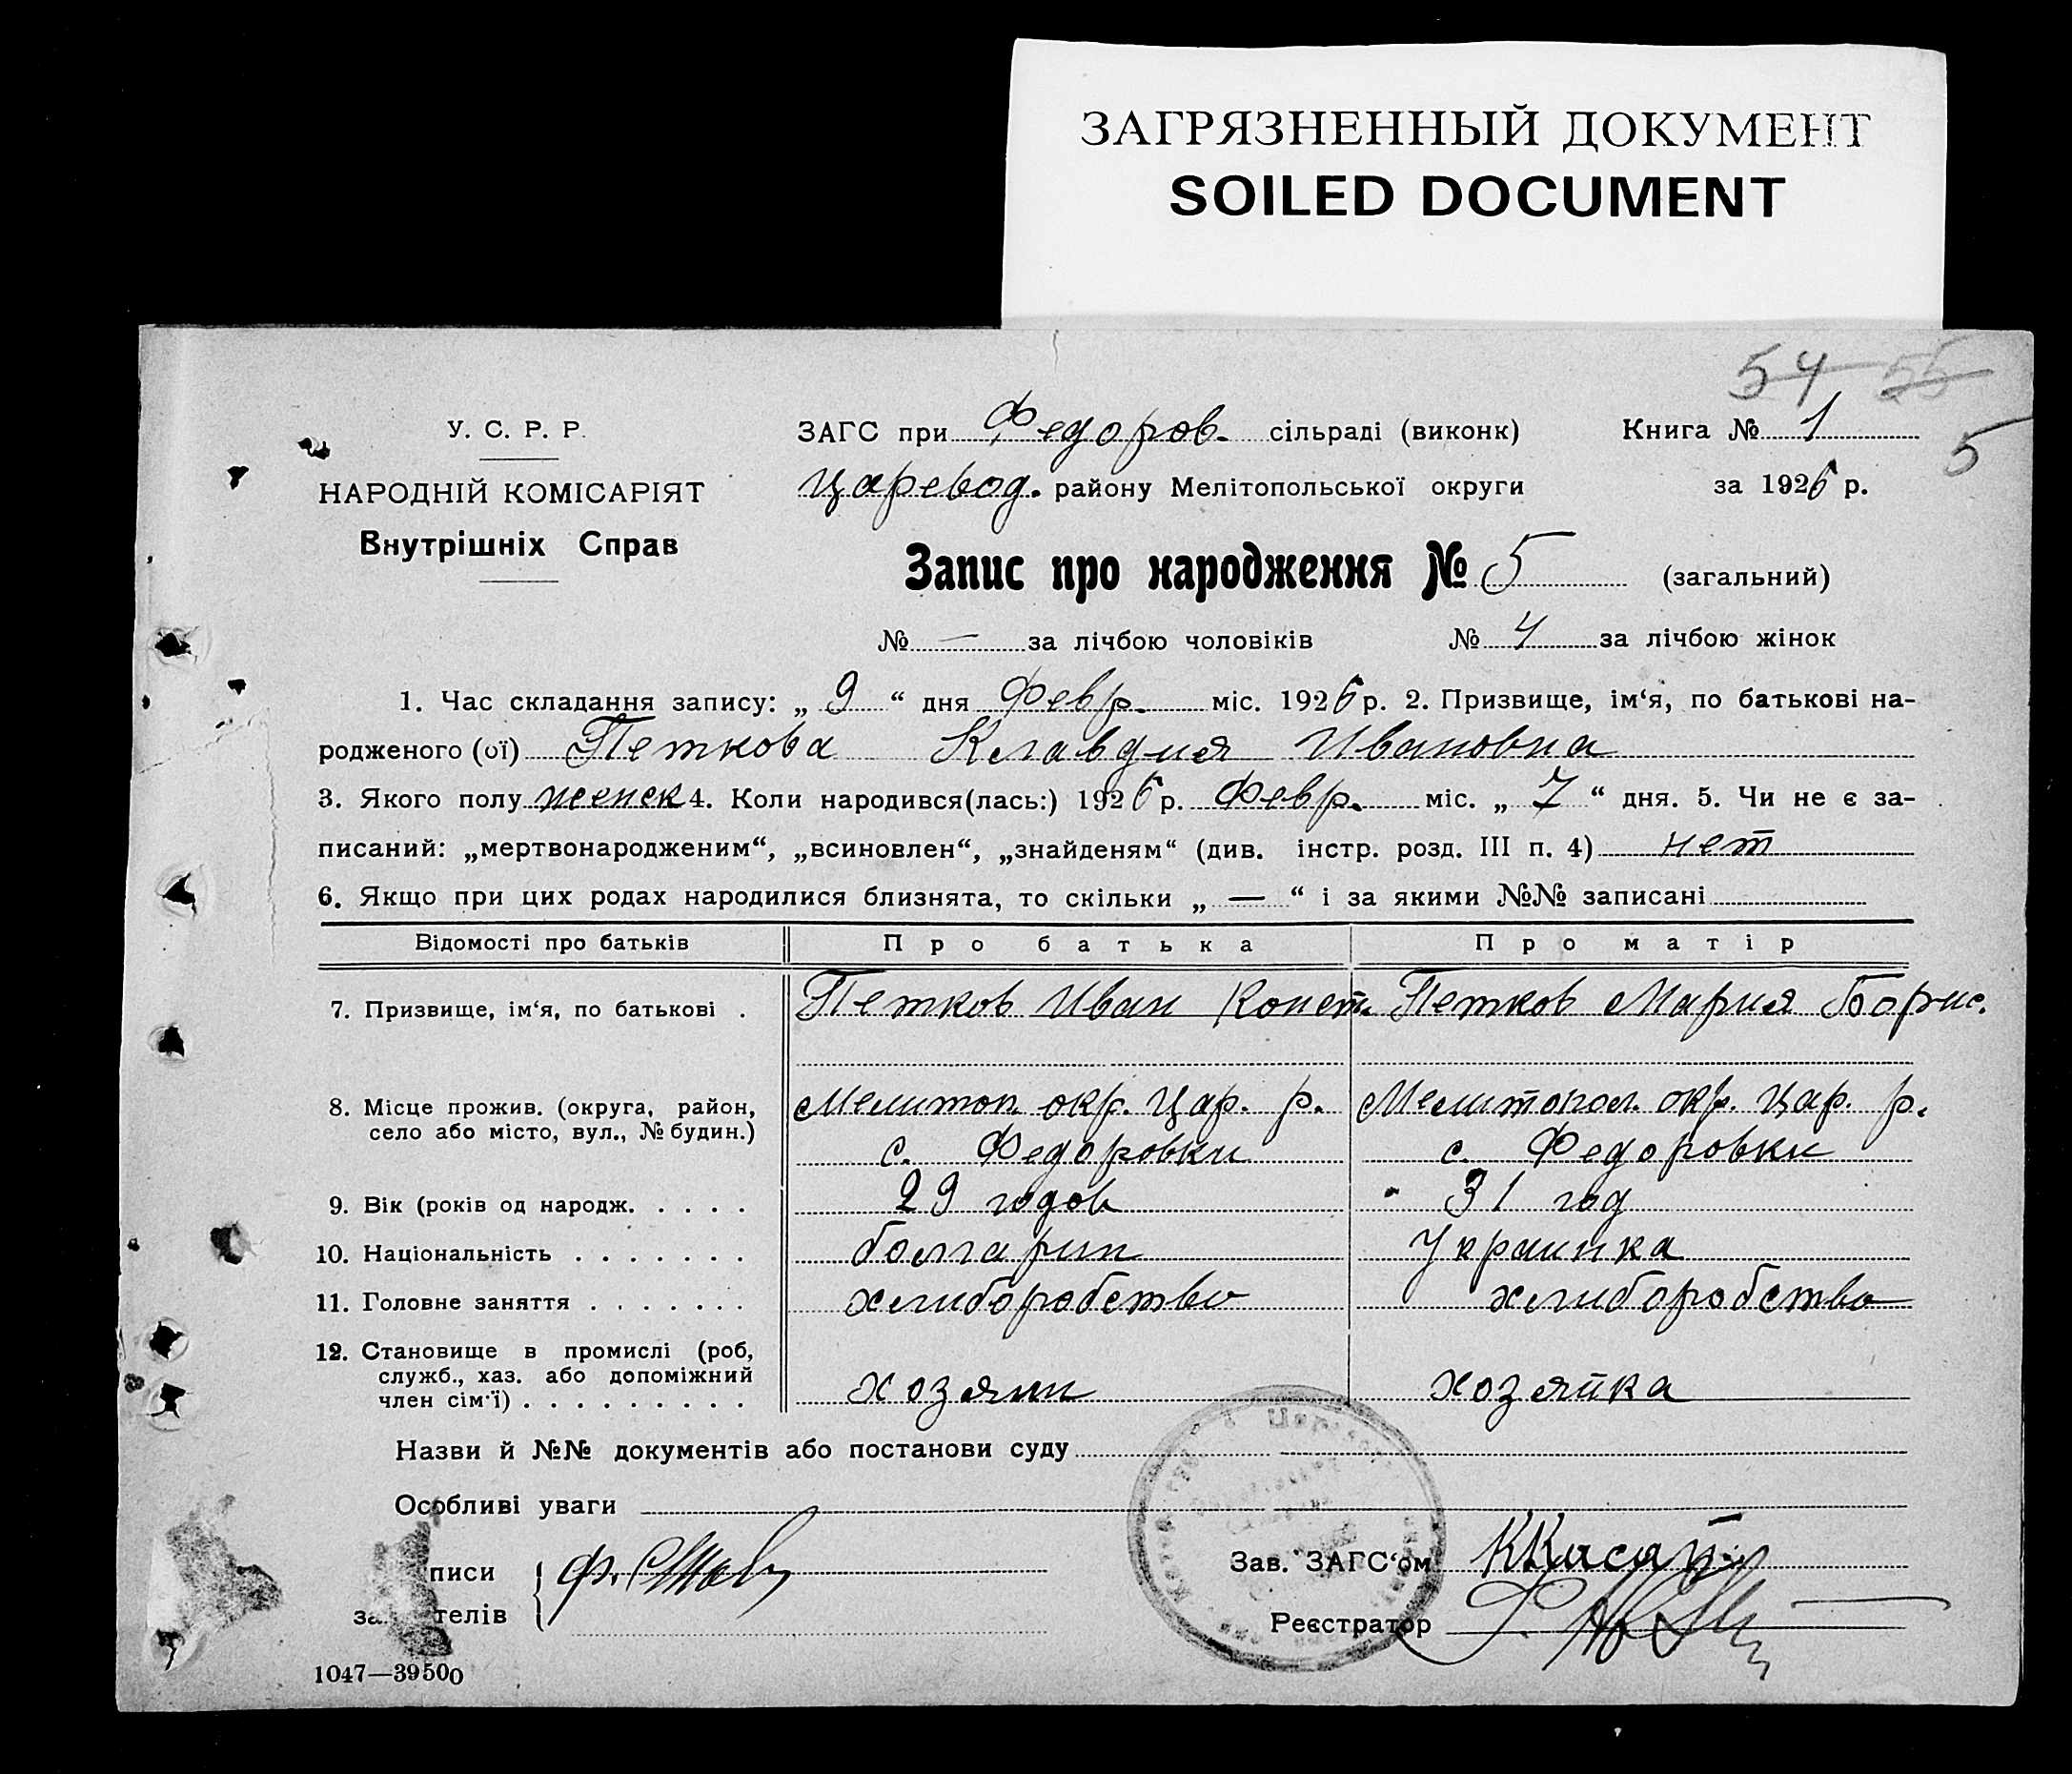 ЗАГРЯЗНЕННЫЙ ДОКУМЕНТ
SOILED DOCUMENT
54 55
5
У. С. Р. Р.
НАРОДНІЙ КОМІСАРІЯТ
Внутрішніх Справ
ЗАГС при Федоров. сільраді (виконк) Книга № 1
Царевод. району Мелітопольської округи за 1926 р.
Запис про народження № 5 (загальний)
№ — за лічбою чоловіків № 4 за лічбою жінок
1. Час складання запису: „ 9 “ дня Февр. міс. 1926 р. 2. Призвище, ім‘я, по батькові на-
родженого (ої) Петкова Клавдия Ивановна
3. Якого полу женск 4. Коли народився(лась:) 1926 р. Февр. міс. „ 7 “ дня. 5. Чи не є за-
писаний: „мертвонародженим“, „всиновлен“, „знайденям“ (див. інстр. розд. III п. 4) нет
6. Якщо при цих родах народилися близнята, то скільки „ — “ і за якими №№ записані
Відомості про батьків Про батька Про матір
7. Призвище, ім‘я, по батькові . Петков Иван Конст. Петков Мария Борис.
8. Місце прожив. (округа, район, Мелитоп. окр. Цар. р. Мелитопол. окр. Цар. р.
село або місто, вул., № будин.) с. Федоровки с. Федоровки
9. Вік (років од народж. . . . . 29 годов 31 год
10. Національність . . . . . . . болгарин Украинка
11. Головне заняття . . . . . . . хлиборобство хлиборобство
12. Становище в промислі (роб,
служб., хаз. або допоміжний хозяин хозяйка
член сім‘ї) . . . . . . . . .
Назви й №№ документів або постанови суду
Особливі уваги
писи Зав. ЗАГС‘ом
телів Реєстратор
1047—39500